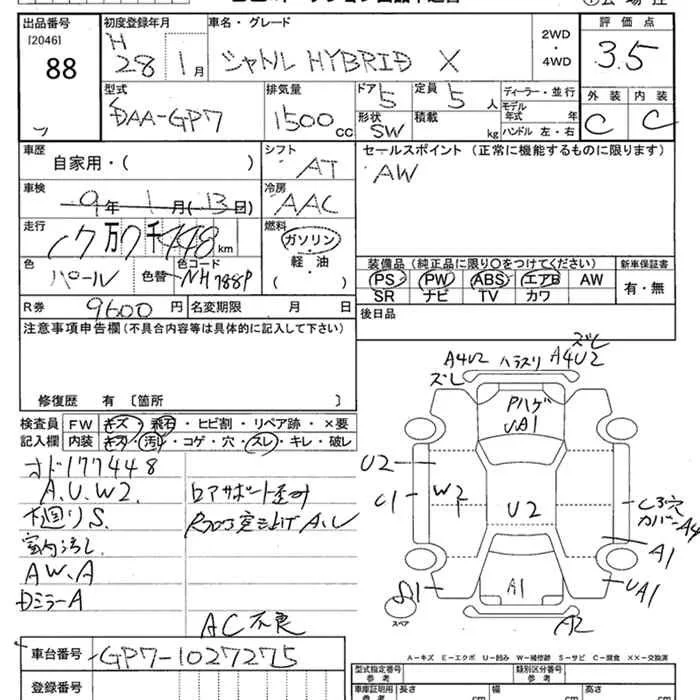 出品番号
[2046]
88
初度登録年月
H
28 1月
車名・グレード
シャトル HYBRID X
2WD
・
4WD
評価点
3.5
外装 内装
C C
型式
DAA-GP7
排気量
1500cc
ドア 5
形状 SW
定員 5人
積載 kg
ディーラー・並行
モデル
年式 年
ハンドル 左・右
車歴
自家用・( )
シフト
AT
セールスポイント (正常に機能するものに限ります)
AW
車検
9年 1月(13日)
冷房
AAC
走行
17万7千448km
燃料
ガソリン
・
軽・油
・
( )
色
パール
色替
色コード
NH788P
装備品(純正品に限り○をつけてください)
PS PW ABS エアB AW
SR ナビ TV カワ
新車保証書
有・無
R券 9600円
名変期限 月 日
後日品
注意事項申告欄(不具合内容等は具体的に記入して下さい)
修復歴 有〔箇所 〕
検査員
記入欄
FW キズ・飛石・ヒビ割・リペア跡・×要
内装 キズ・汚レ・コゲ・穴・スレ・キレ・破レ
オド177448
A.U.W2.
下廻りS.
室内汚レ.
AW.A
Dミラー A
AC不良
ズレ
A4U2
ハラスリ
A4U2
ズレ
Pハゲ
UA1
U2
C1
W2
U2
カバーA4
A1
UA1
A1
A2
スペア
A-キズ E-エクボ U-凹み W-補修跡 S-サビ C-腐食 ××-交換済
車台番号
GP7-1027275
登録番号
型式指定番号
類別区分番号
車庫証明用
参考
長さ cm
幅 cm
高さ cm